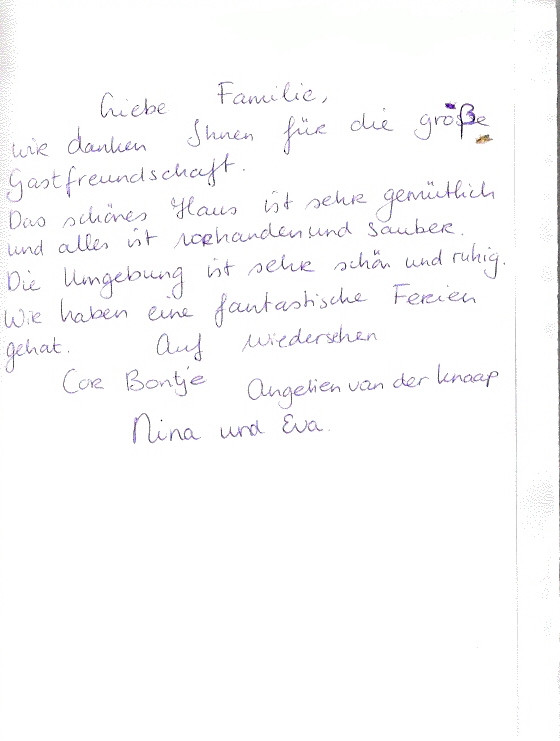 Liebe Familie,
wir danken Ihnen für die größe
Gastfreundschaft.
Das schönes Haus ist sehr gemütlich
und alles ist vorhanden und sauber.
Die Umgebung ist sehr schön und ruhig.
Wir haben eine fantastische Fereien
gehat. Auf wiedersehen
Cor Bontje Angelien van der Knaap
Nina und Eva.